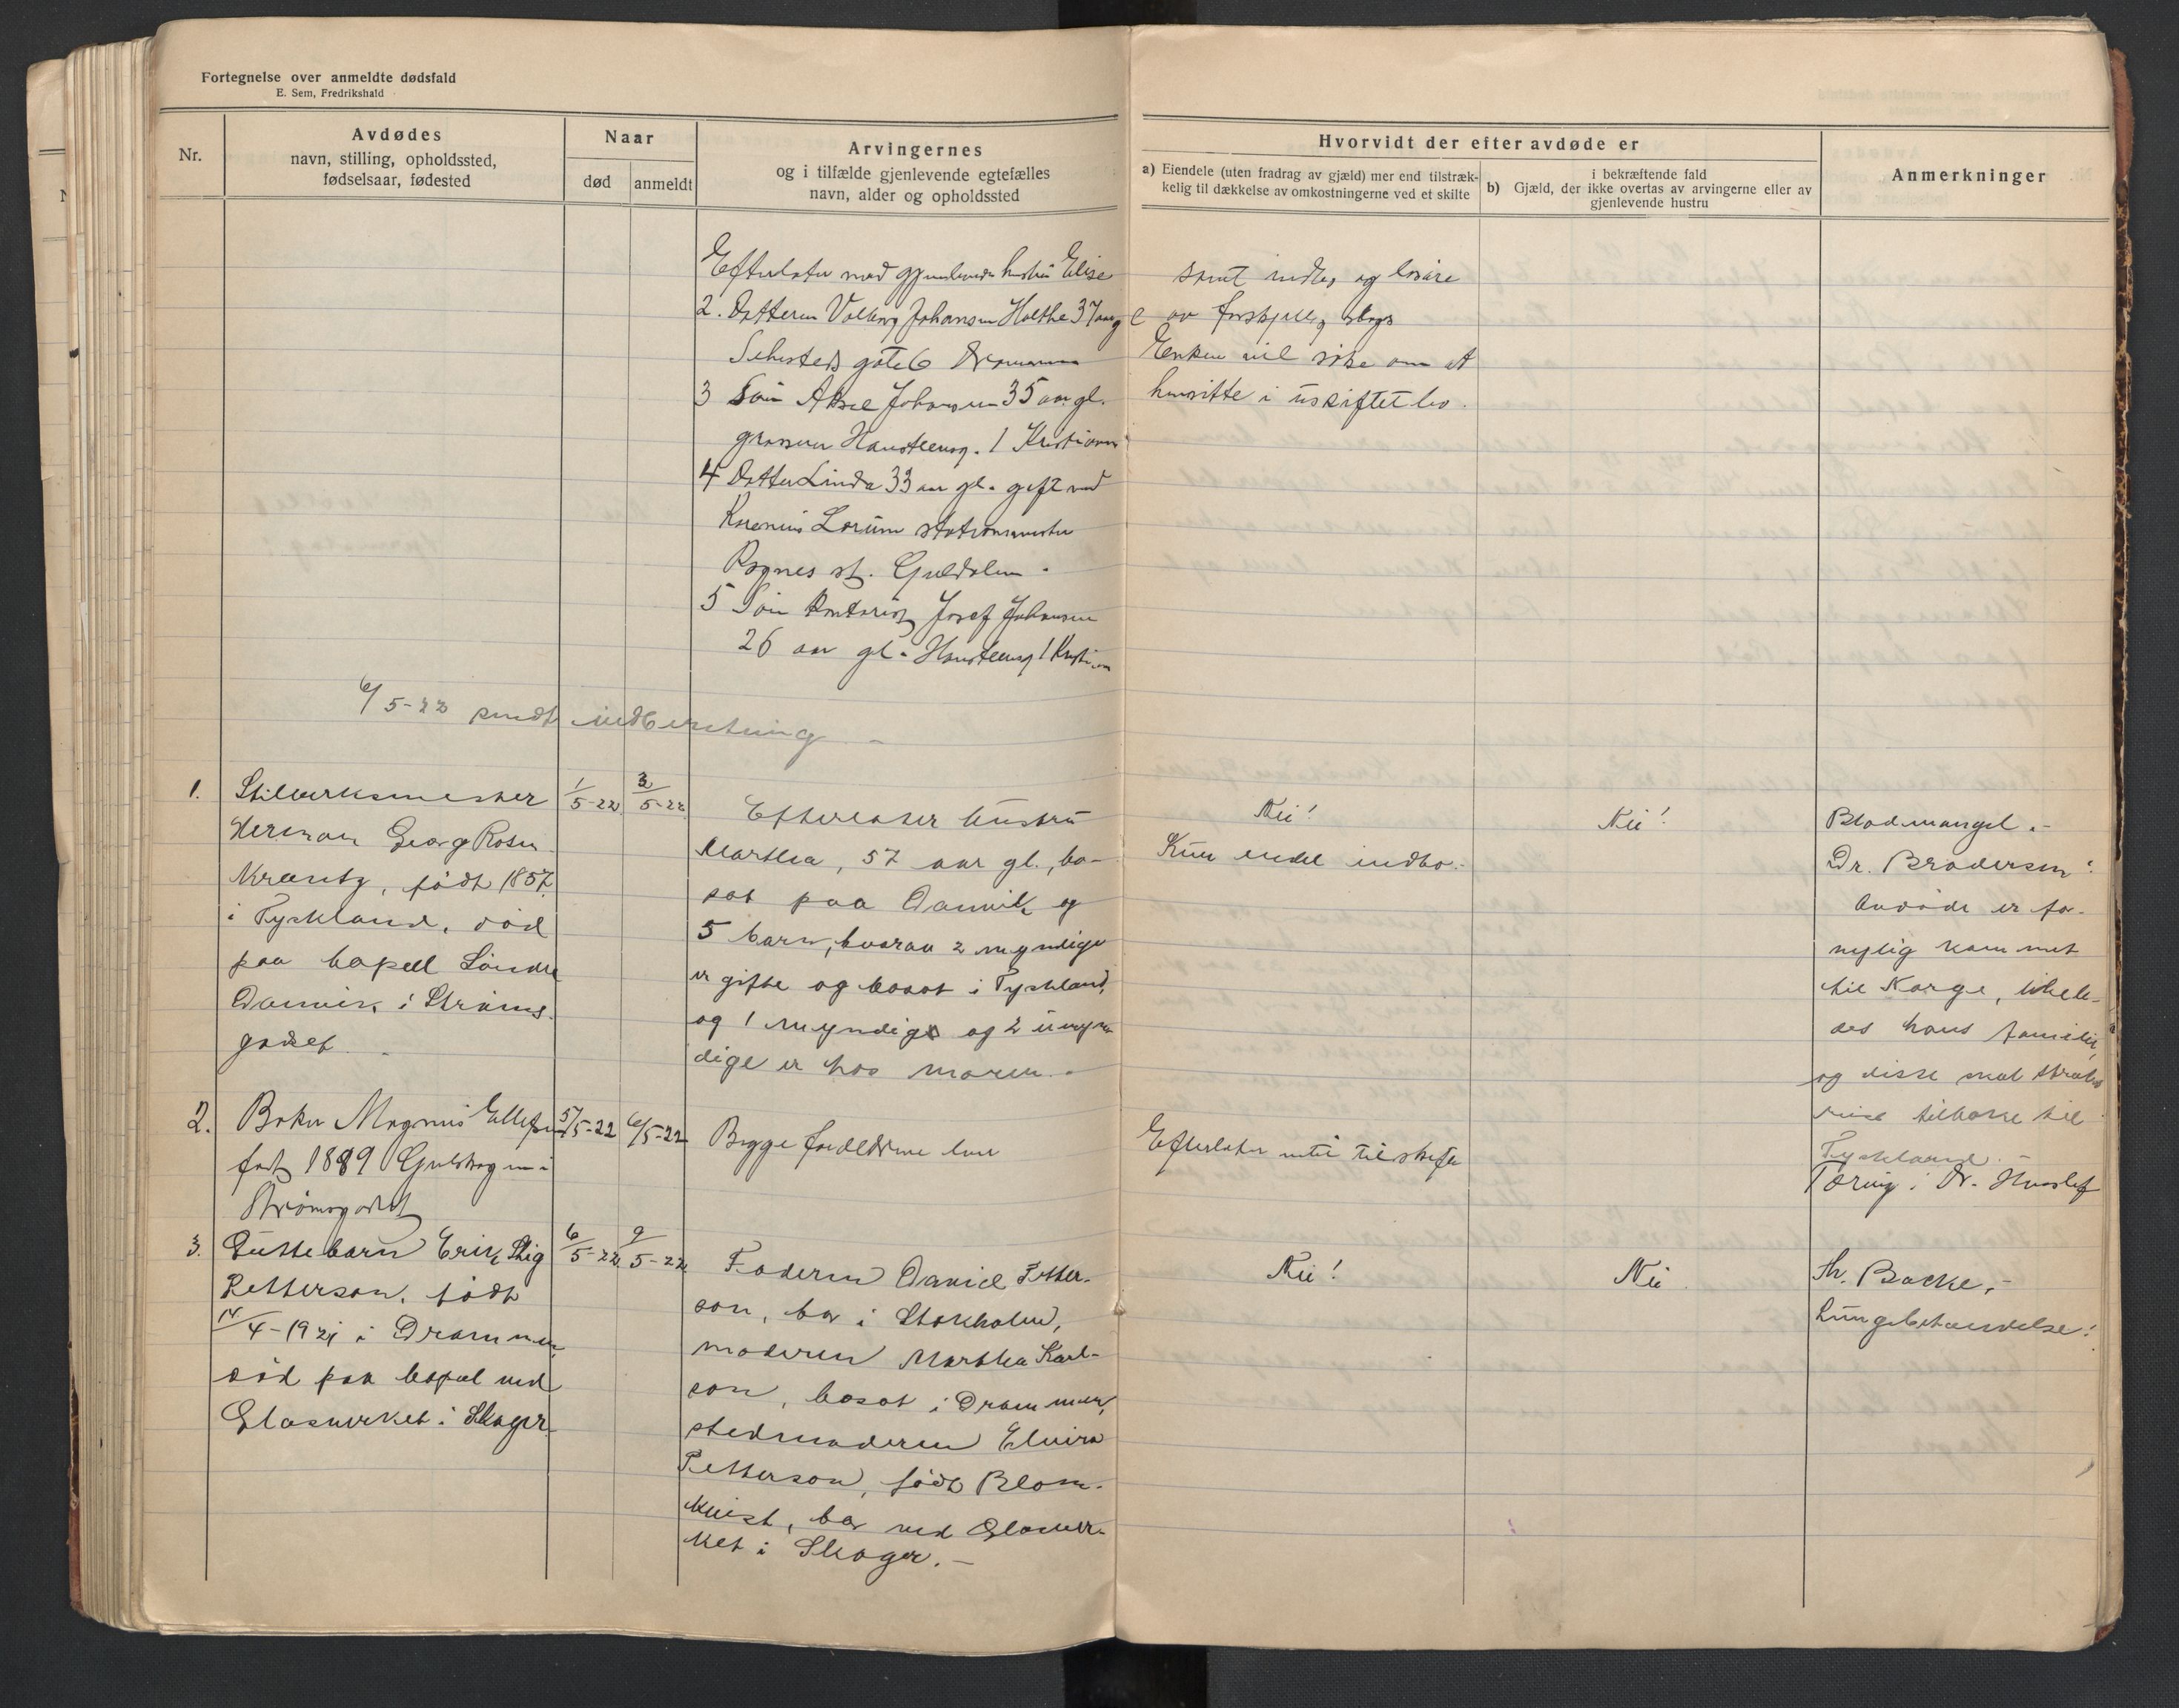 Fortegnelse over anmeldte dødsfald
E. Sem, Fredrikshald
Nr.
Avdødes
navn, stilling, opholdssted,
fødselsaar, fødested
Naar
død
anmeldt
Arvingernes
og i tilfælde gjenlevende egtefælles
navn, alder og opholdssted
Hvorvidt der efter avdøde er
a) Eiendele (uten fradrag av gjæld) mer end tilstræk-
kelig til dækkelse av omkostningerne ved et skilte
i bekræftende fald
b) Gjæld, der ikke overtas av arvingerne eller av
gjenlevende hustru
Anmerkninger
Efterlater med gjenlevende hustru Elise
2. Datteren Valborg Johansen Holthe 37 aar gl
Sehesteds gate 6 Drammen
3 Søn Aksel Johansen 35 aar gl.
grosserer Hansteensg. 1 Kristiania
4 Datter Linda 33 aar gl. gift med
Lorum stationsmester
Rognes st. Guldalen.
5 Søn Kontorist Josef Johansen
26 aar gl. Hansteensg 1 Kristiania
samt indbo og løsøre
av forskjellig slags
Enken vil søke om at
hensitte i uskiftet bo.
6/5-22 sendt indberetning –
1.
Herman Georg Rosen
Krantz, født 1857
i Tyskland, død
paa bopæl Søndre
Danvik i Strøms-
godset.
1/5-22
3/5-22
Efterlater hustru
Martha, 57 aar gl., bo-
sat paa Danvik og
5 barn, hvorav 2 myndige
er gifte og bosat i Tyskland,
og 1 myndig og 2 umyn-
dige er hos moren.
Nei!
Kun endel indbo.
Nei!
Blodmangel.-
Dr. Brodersen:
Avdøde er for-
nylig kommet
til Norge, likele-
des hans familie,
og disse skal straks
reise tilbake til
Tyskland.
2.
Baker Magnus Ellefsen
født 1889 Gulskogen i
Strømsgodset
5/5-22
6/5-22
Begge forældrene lever
Efterlater intet til skifte
Tæring: Dr.
3.
Guttebarn Erik Stig
Petterson, født
14/4-1921 i Drammen,
død paa bopæl ved
Glasverket i Skoger
6/5-22
9/5-22
Faderen Daniel Petter-
son, bor i Stokholm,
moderen Martha Karl-
son, bosat i Drammen,
stedmoderen Elvira
Petterson, født Blom-
kvist, bor ved Glasver-
ket i Skoger. –
Nei!
Nei
Th. Backe,-
Lungebetændelse!